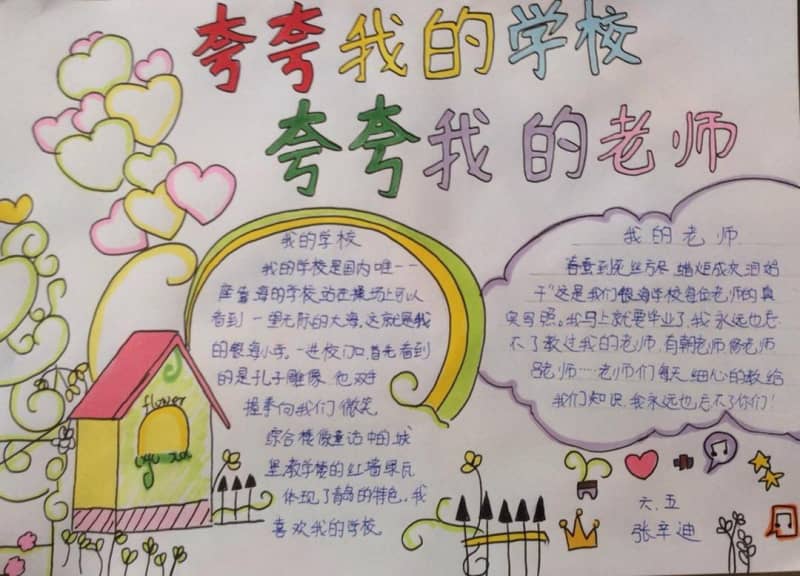 夸夸我的学校
夸夸我的老师
我的学校
我的学校是国内唯一一
座靠海的学校,站在操场上可以
看到一望无际的大海。这就是我
的银海小学。一进校门口,首先看到
的是孔子雕像,他双手
握拳向我们微笑
综合楼像童话中的城
堡教学楼的红墙绿瓦
体现了青岛的特色,我
喜欢我的学校
flower
我的老师
春蚕到死丝方尽 蜡炬成灰泪始
干"这是我们银海学校每位老师的真
实写照。我马上就要毕业了,我永远也忘
不了教过我的老师,有朝老师杨老师
吕老师……老师们每天细心的教给
我们知识,我永远也忘不了你们!
六.五
张辛迪